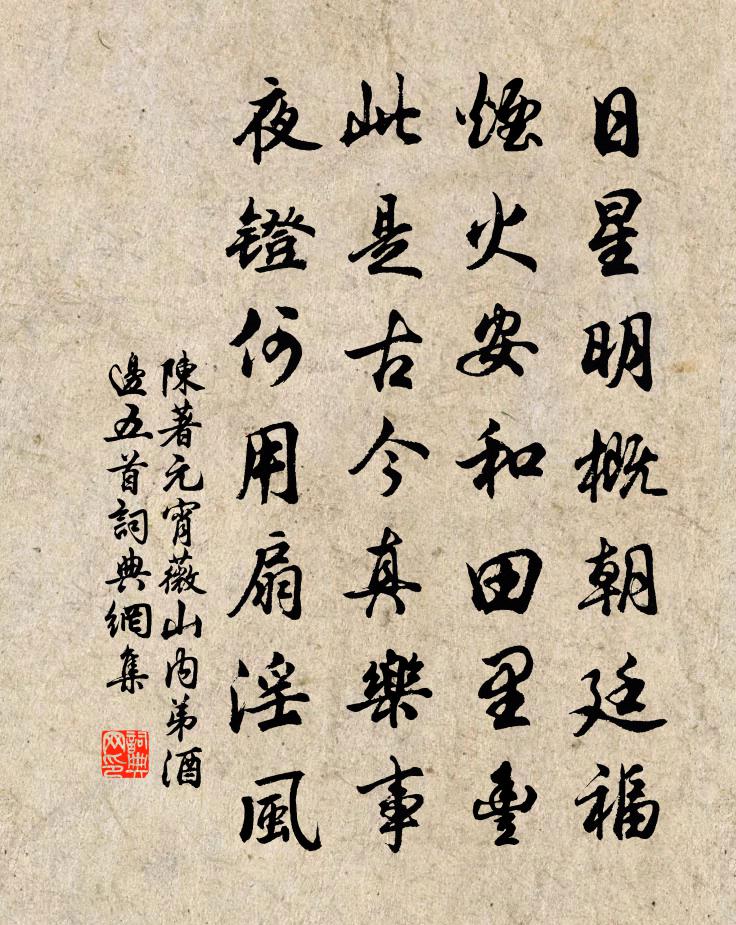 日星明概朝廷福
煙火安和田里豊
此是古今真樂事
夜鐙何用扇淫風
陳著元宵薇山内弟酒
邊五首詞典網集
詞典
网印